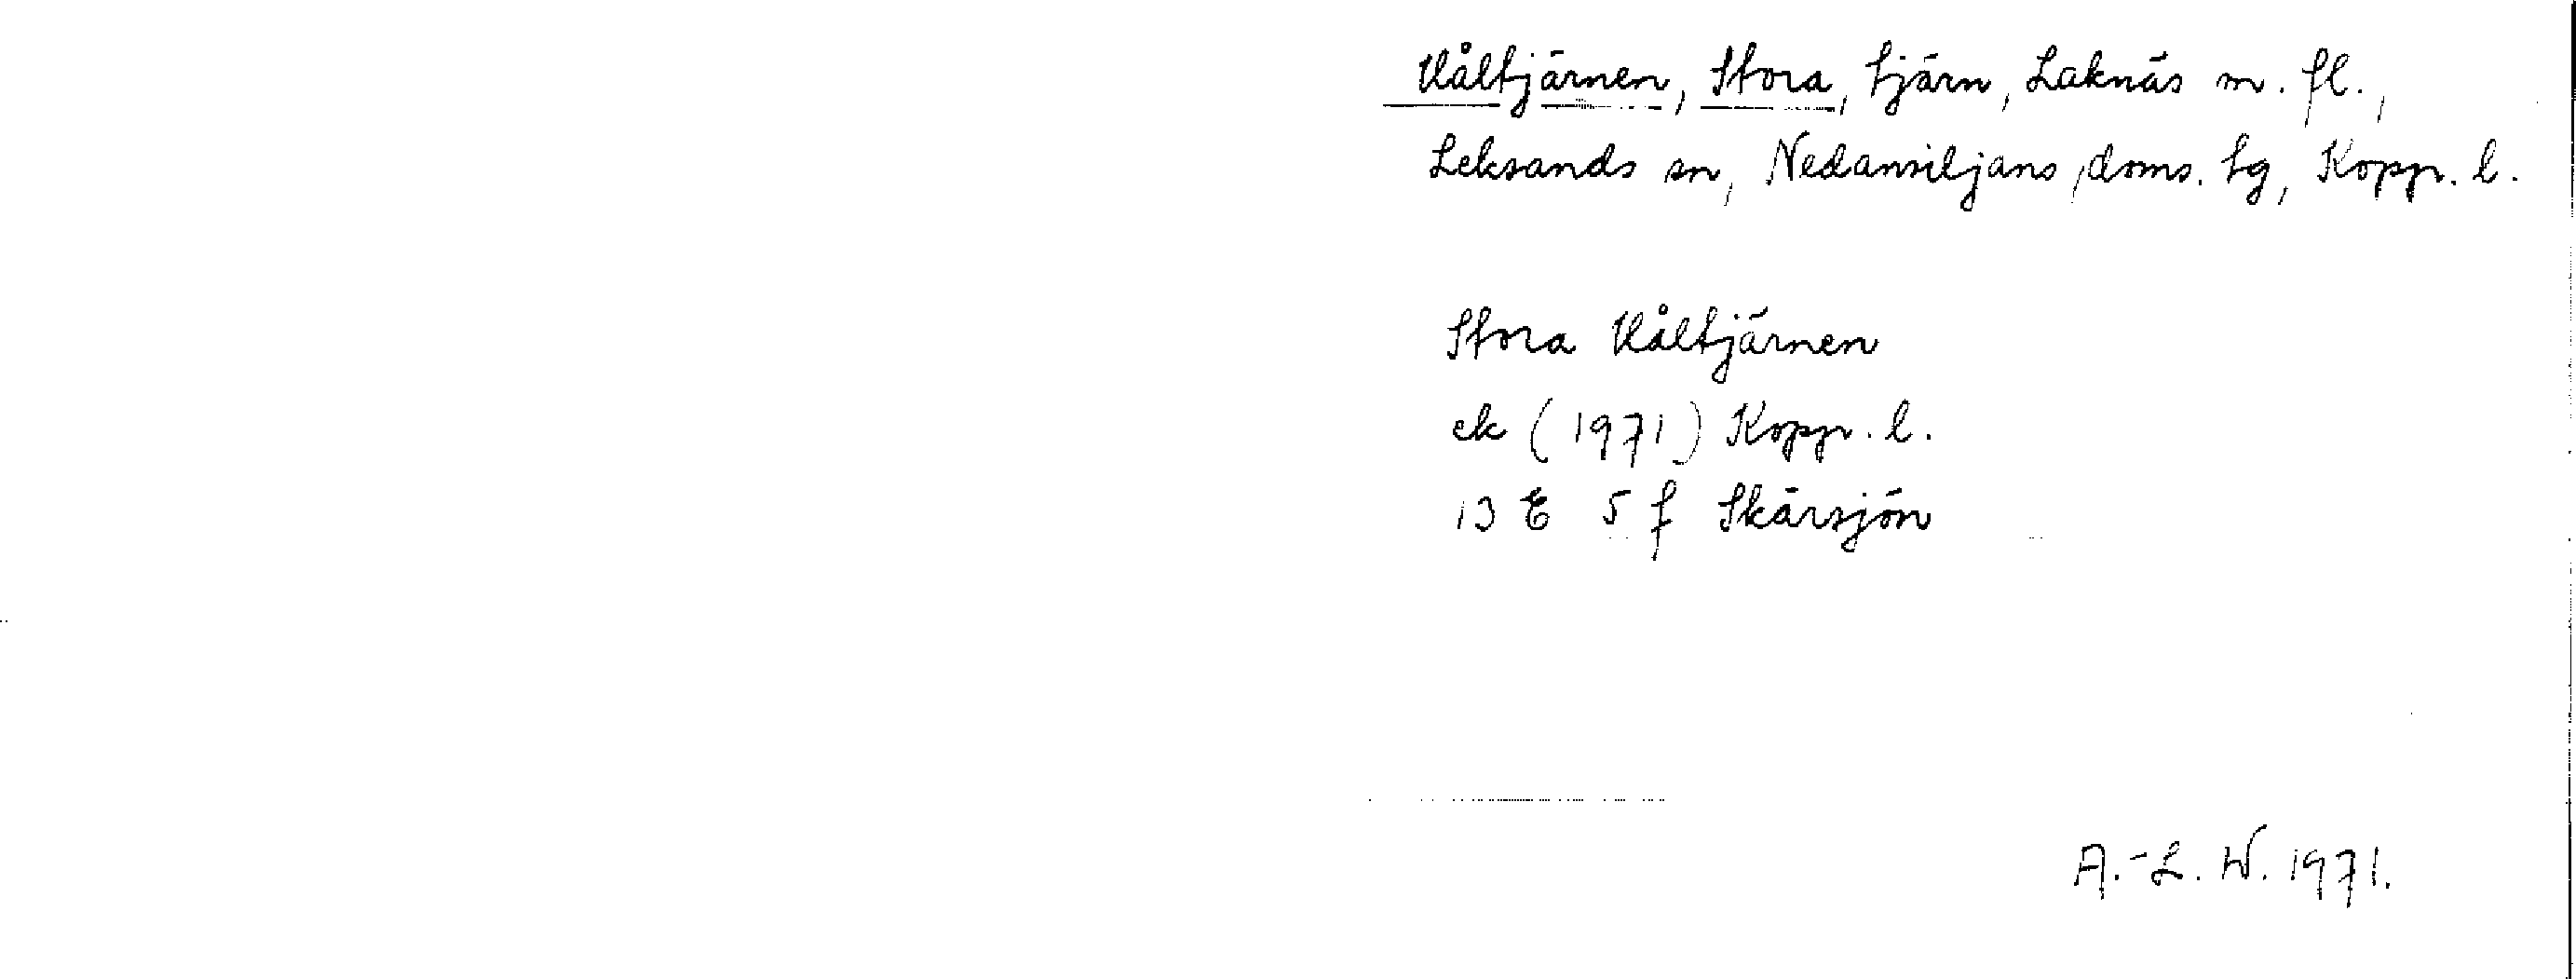 Våltjärnen, Stora, tjärn, Laknäs m. fl.,
Leksands sn, Nedansiljans doms. tg, Kopp. l.
Stora Våltjärnen
ek (1971) Kopp. l.
13 E 5 f Skärsjön
A.-L. W. 1971.